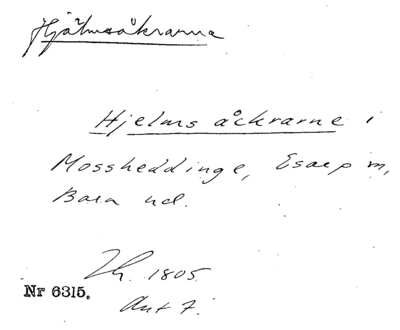 Hjälmsåkrarna
Hjelms åckrarne i
Mossheddinge, Esarp sn,
Bara hd.
Lh. 1805.
Nr 6315.
Akt 7.